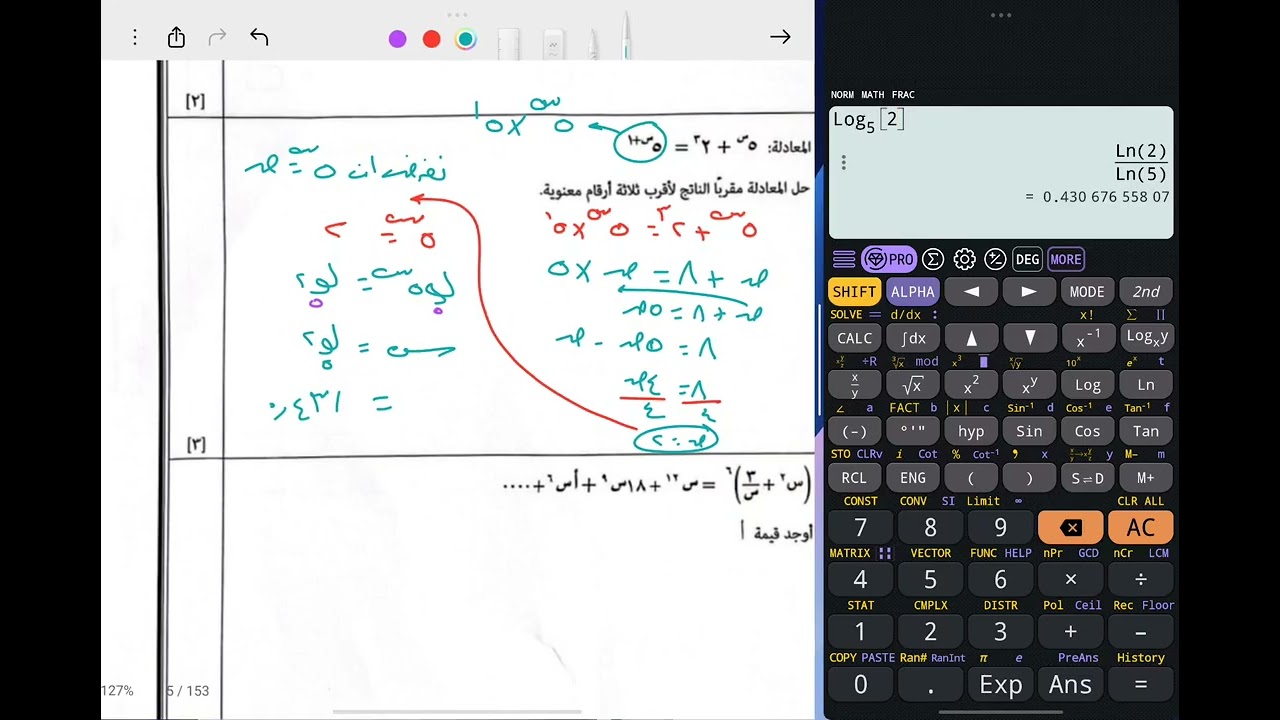 [٢]
المعادلة: ٥س + ٢٣ = ٥س+١
٥س × ٥١
حل المعادلة مقربًا الناتج لأقرب ثلاثة أرقام معنوية.
٥س + ٢٣ = ٥س × ٥١
ص + ٨ = ص × ٥
ص + ٨ = ٥ص
٨ = ٥ص - ص
٨ = ٤ص
٤ ٤
ص = ٢
نفرض ان ٥س = ص
٥س = ٢
لو٥ ٥س = لو٥ ٢
س = لو٥ ٢
= ٤٣١ر٠
[٣]
(س٢ + ٣/س)٦ = س١٢ + ١٨س٩ + أس٦ + ....
أوجد قيمة أ
127%
5 / 153
NORM MATH FRAC
Log5[2]
Ln(2)
Ln(5)
= 0.430 676 558 07
PRO DEG MORE
SHIFT ALPHA ◄ ► MODE 2nd
SOLVE = d/dx : x! Σ
CALC ∫dx ▲ ▼ x-1 Logxy
÷R 3√x mod x3 x√y 10x ex t
x/y √x x2 xy Log Ln
∠ a FACT b |x| c Sin-1 d Cos-1 e Tan-1 f
(-) °'" hyp Sin Cos Tan
STO CLRv i Cot % Cot-1 , x y M- m
RCL ENG ( ) S⇌D M+
CONST CONV SI Limit ∞ CLR ALL
7 8 9 AC
MATRIX VECTOR FUNC HELP nPr GCD nCr LCM
4 5 6 × ÷
STAT CMPLX DISTR Pol Ceil Rec Floor
1 2 3 + -
COPY PASTE Ran# RanInt π e PreAns History
0 . Exp Ans =